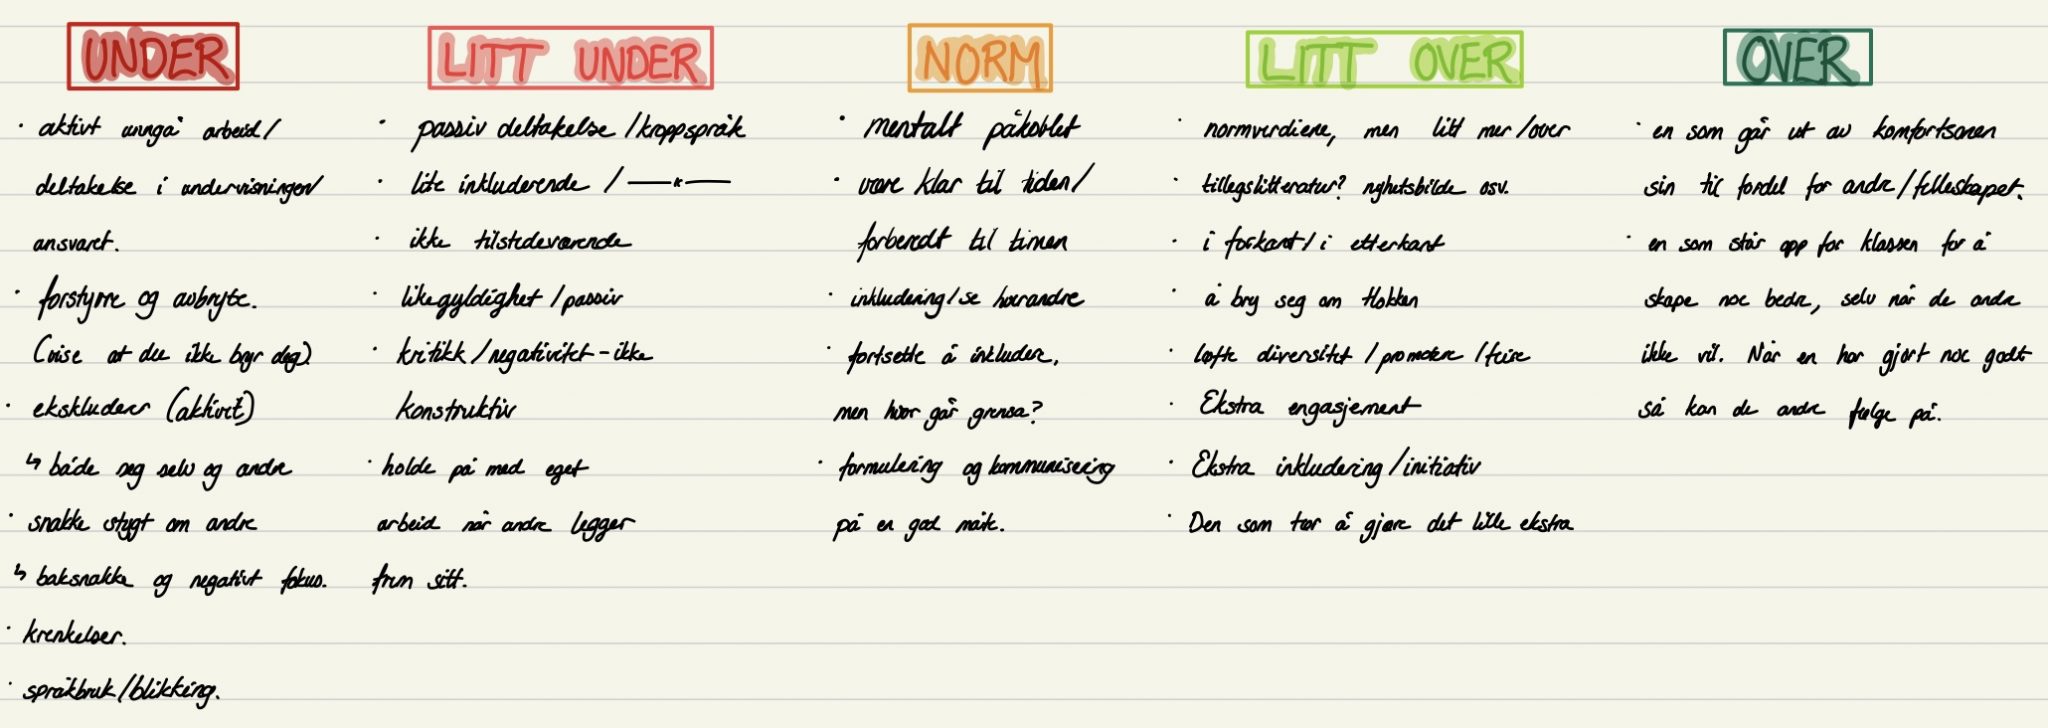 UNDER
· aktivt unngå arbeid/
deltakelse i undervisningen/
ansvaret.
· forstyrre og avbryte.
(vise at du ikke bryr deg)
· ekskluderer (aktivt)
↳ både seg selv og andre
· snakke stygt om andre
↳ baksnakke og negativt fokus.
· krenkelser.
· språkbruk/blikking.
LITT UNDER
· passiv deltakelse /kroppspråk
· lite inkluderende / —"—
· ikke tilstedeværende
· likegyldighet /passiv
· kritikk /negativitet - ikke
konstruktiv
· holde på med eget
arbeid når andre legger
frem sitt.
NORM
· mentalt påkoblet
· være klar til tiden/
forberedt til timen
· inkludering/se hverandre
· fortsette å inkludere,
men hvor går grensa?
· formulering og kommunisering
på en god måte.
LITT OVER
· normverdiene, men litt mer/over
· tillegslitteratur? nyhetsbilde osv.
· i forkant/ i etterkant
· å bry seg om flokken
· løfte diversitet /promotere /feire
· Ekstra engasjement
· Ekstra inkludering /initiativ
· Den som tør å gjøre det lille ekstra
OVER
· en som går ut av komfortsonen
sin til fordel for andre/felleskapet.
· en som står opp for klassen for å
skape noe bedre, selv når de andre
ikke vil. Når en har gjort noe godt
så kan de andre følge på.